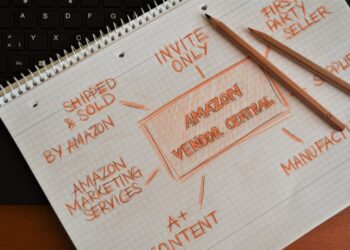 INVITE
ONLY
FIRST
PARTY
SELLER
SHIPPED
& SOLD
BY AMAZON
AMAZON
VENDOR CENTRAL
AMAZON
MARKETING
SERVICES
A+
CONTENT